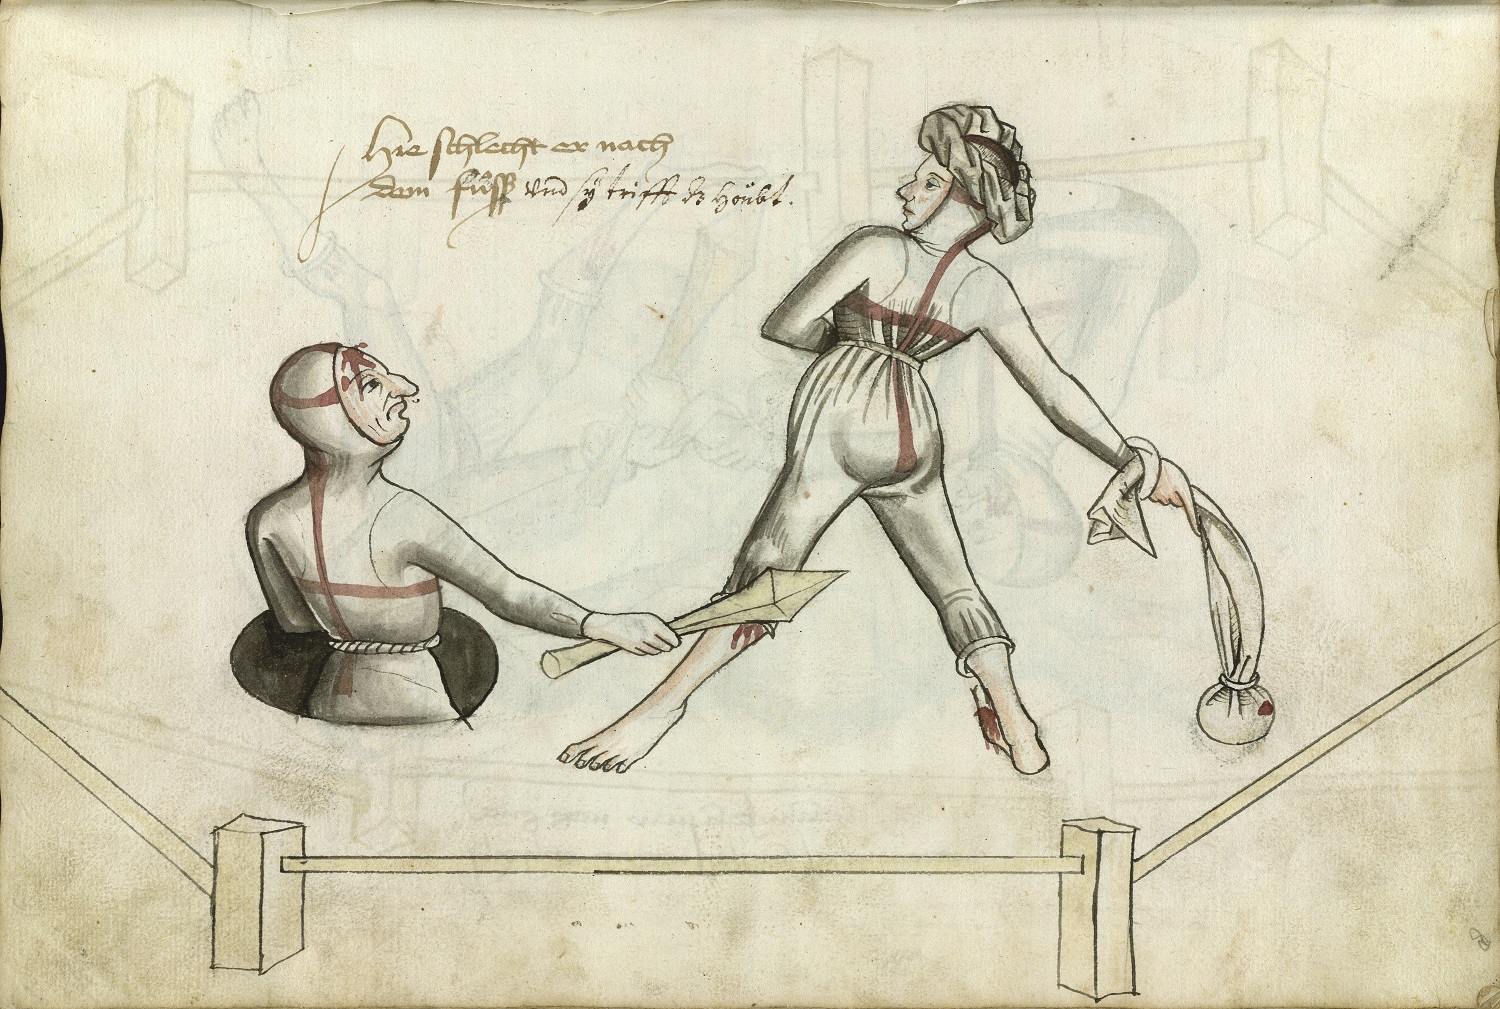 Hie schlecht er nach
dem fůsß vnd sy trifft dz hoübt.